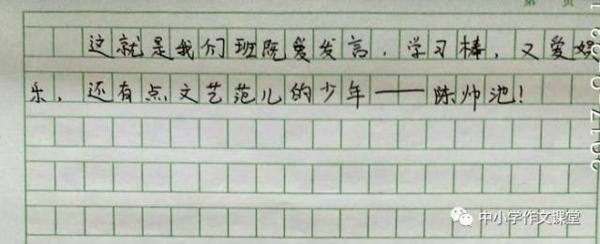 这就是我们班既爱发言，学习棒，又爱娱
乐，还有点文艺范儿的少年——陈帅池！
中小学作文课堂